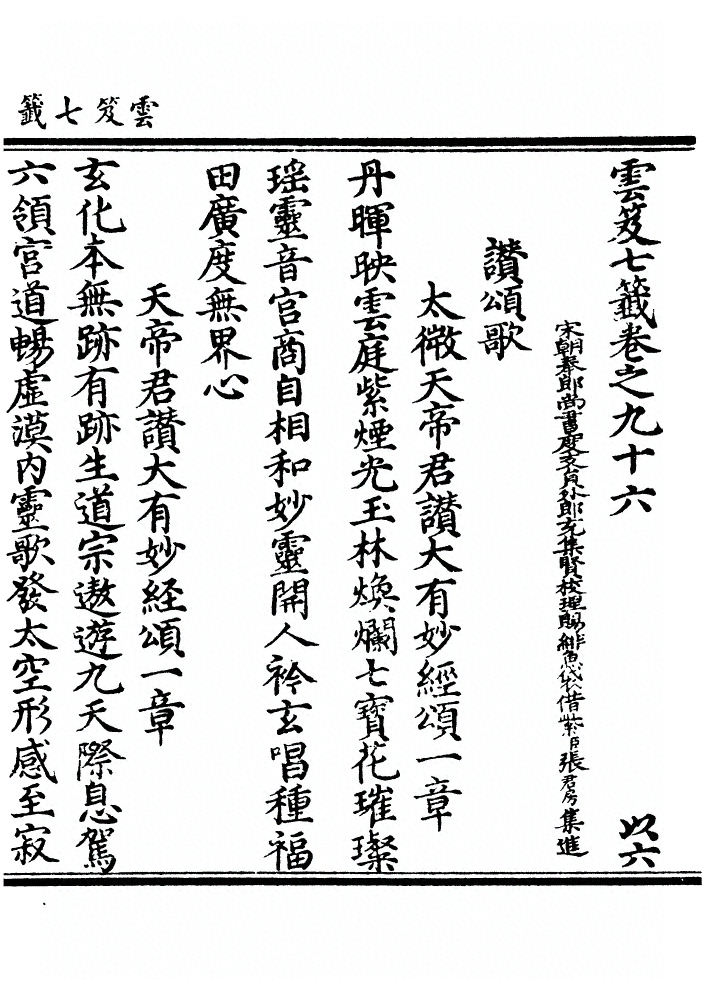 雲笈七籤
雲笈七籤卷之九十六
以六
宋朝奉郎尚書度支員外郎充集賢校理賜緋魚袋借紫臣張君房集進
讚頌歌
太微天帝君讃大有妙經頌一章
丹暉映雲庭紫煙光玉林煥爛七寶花璀璨
瑶靈音宫商自相和妙靈開人衿玄唱種福
田廣度無界心
天帝君讃大有妙経頌一章
玄化本無跡有跡生道宗遨遊九天際息駕
六領宫道暢虚漠内靈歌發太空形感至寂